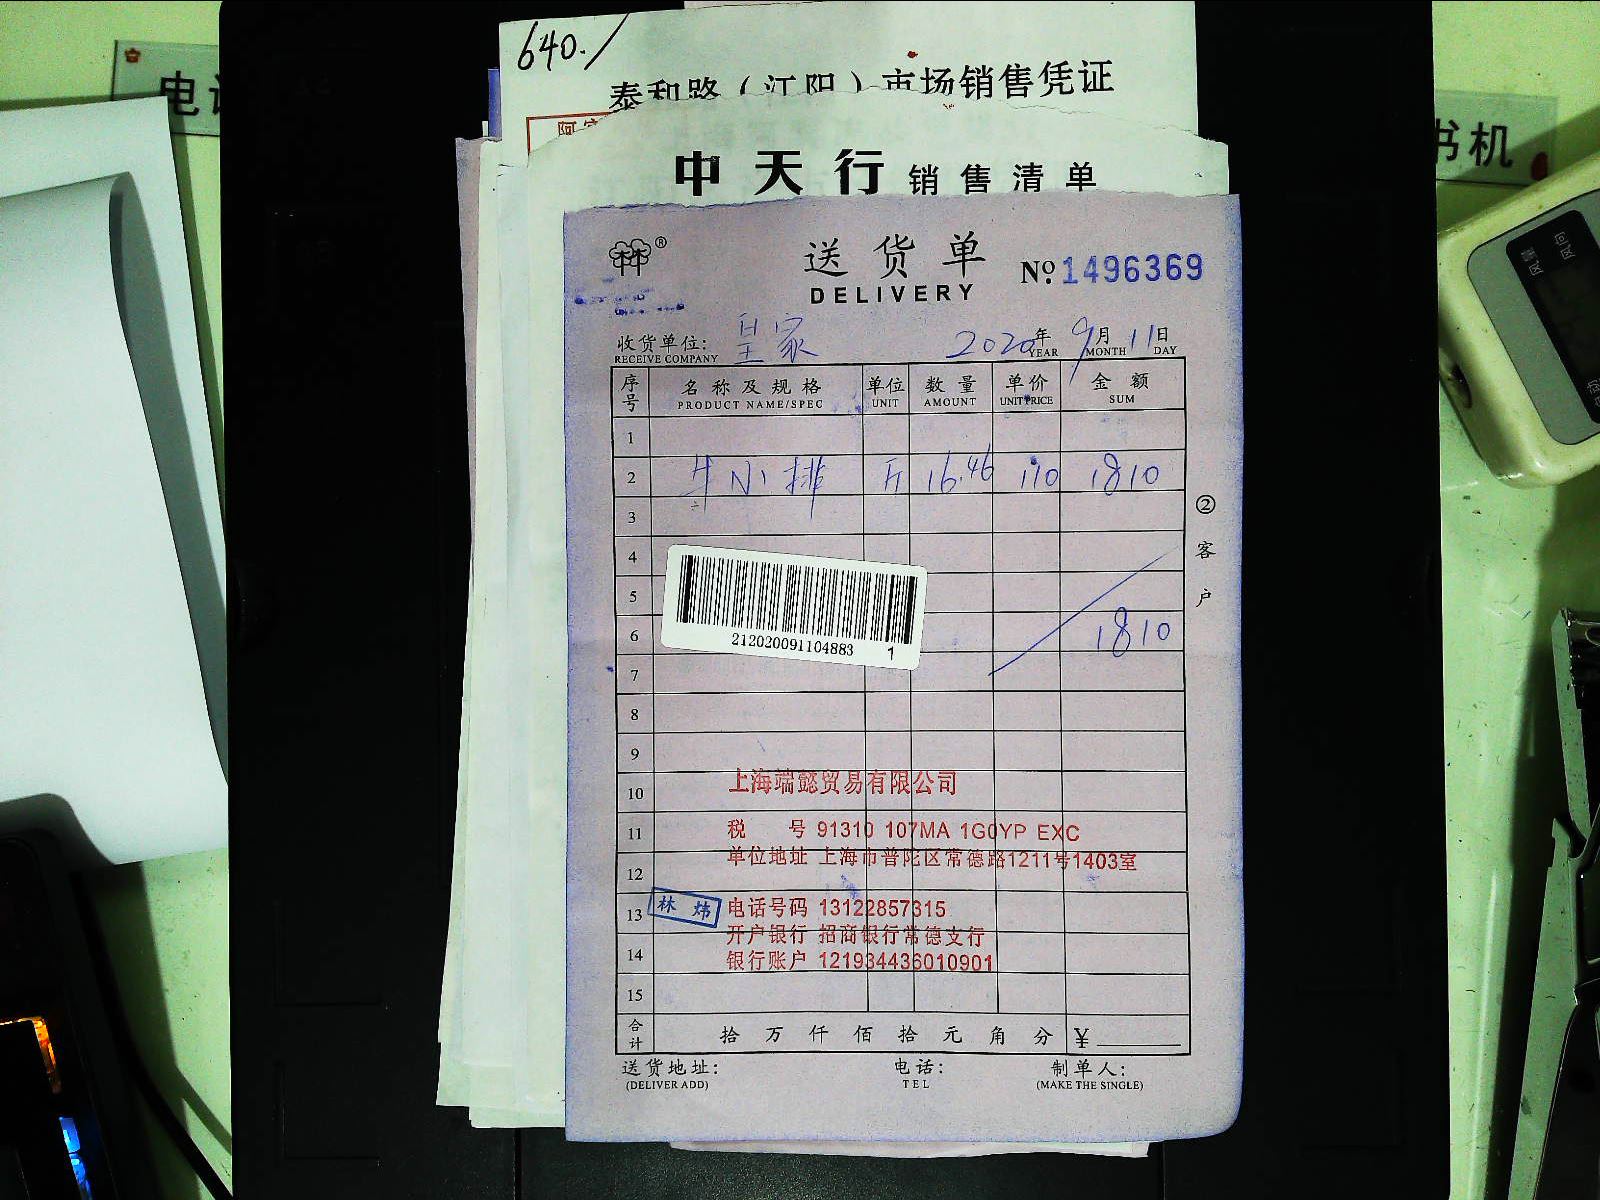 640./
泰和路（江阳）市场销售凭证
中天行 销售清单
送货单
DELIVERY
№ 1496369
收货单位: 皇家 2020年 9月 11日
RECEIVE COMPANY YEAR MONTH DAY
序号 名称及规格 单位 数量 单价 金额
PRODUCT NAME/SPEC UNIT AMOUNT UNIT PRICE SUM
1
2 牛小排 斤 16.46 110 1810
3
4
5
6 1810
7
8
9
10
11
12
13
14
15
② 客户
212020091104883 1
上海端懿贸易有限公司
税 号 91310 107MA 1G0YP EXC
单位地址 上海市普陀区常德路1211号1403室
林炜
电话号码 13122857315
开户银行 招商银行常德支行
银行账户 121934436010901
合计 拾 万 仟 佰 拾 元 角 分 ¥
送货地址: 电话: 制单人:
(DELIVER ADD) TEL (MAKE THE SINGLE)
书机
风量
风向